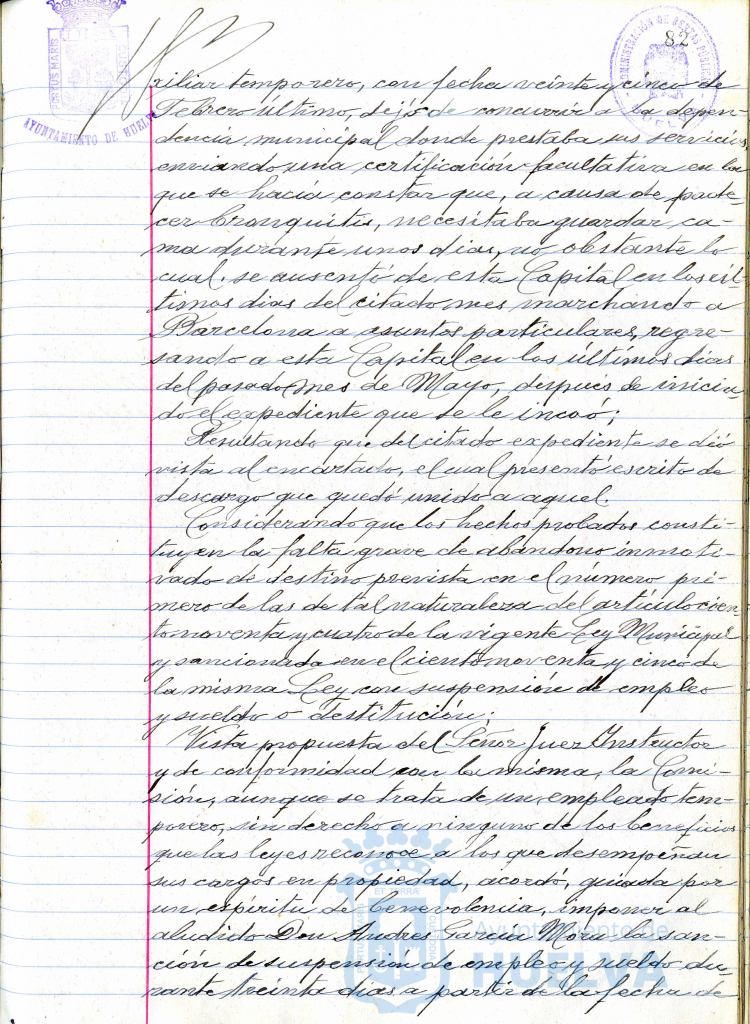 82
PORTUS MARIS
AYUNTAMIENTO DE HUELVA
ADMINISTRACIÓN DE RENTAS PÚBLICAS
HUELVA
xiliar temporero, con fecha veinte y cinco de
Febrero último, dejó de concurrir a la depen-
dencia municipal donde prestaba sus servicios,
enviando una certificación facultativa en la
que se hacía constar que, a causa de pade-
cer bronquitis, necesitaba guardar ca-
ma durante unos dias, no obstante lo
cual, se ausentó de esta Capital en los úl-
timos dias del citado mes marchando a
Barcelona a asuntos particulares, regre-
sando a esta Capital en los últimos dias
del pasado mes de Mayo, despues de inicia-
do el expediente que se le incoó;
Resultando que del citado expediente se dió
vista al encartado, el cual presentó escrito de
descargo que quedó unido a aquel.
Considerando que los hechos probados consti-
tuyen la falta grave de abandono inmoti-
vado de destino prevista en el número pri-
mero de las de tal naturaleza del artículo cien-
to noventa y cuatro de la vigente Ley Municipal
y sancionada en el ciento noventa y cinco de
la misma Ley con suspensión de empleo
y sueldo o destitución;
Vista propuesta del Señor Juez Instructor
y de conformidad con la misma, la Comi-
sión, aunque se trata de un empleado tem-
porero, sin derecho a ninguno de los beneficios
que las leyes reconoce a los que desempeñan
sus cargos en propiedad, acordó, guiada por
un espíritu de benevolencia, imponer al
aludido Don Andres Garcia Mora la san-
ción de suspensión de empleo y sueldo du-
rante treinta dias a partir de la fecha de
Ayuntamiento de
HUELVA